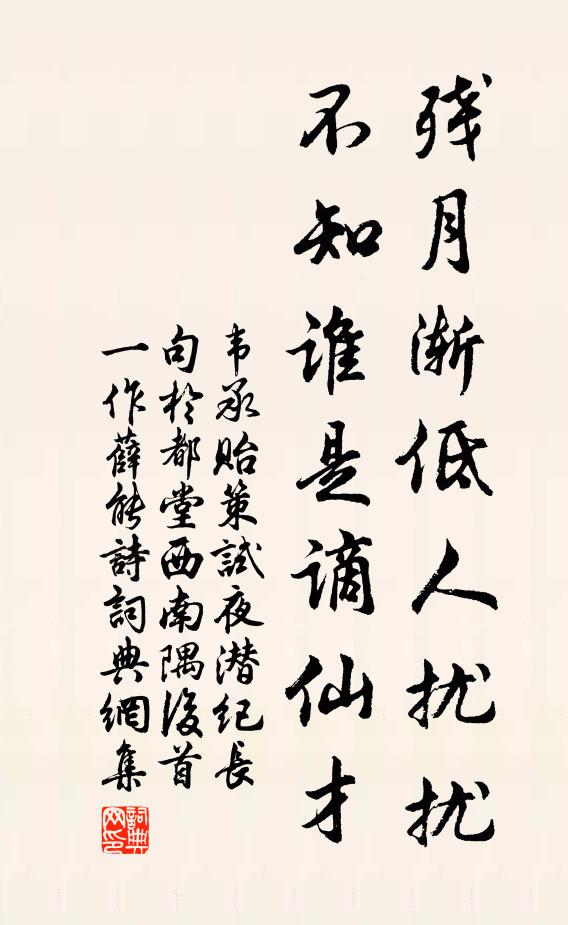 残月渐低人扰扰
不知谁是谪仙才
韦承贻策試夜潜纪長
句於都堂西南隅後首
一作薛能詩詞典網集
詞典
网印